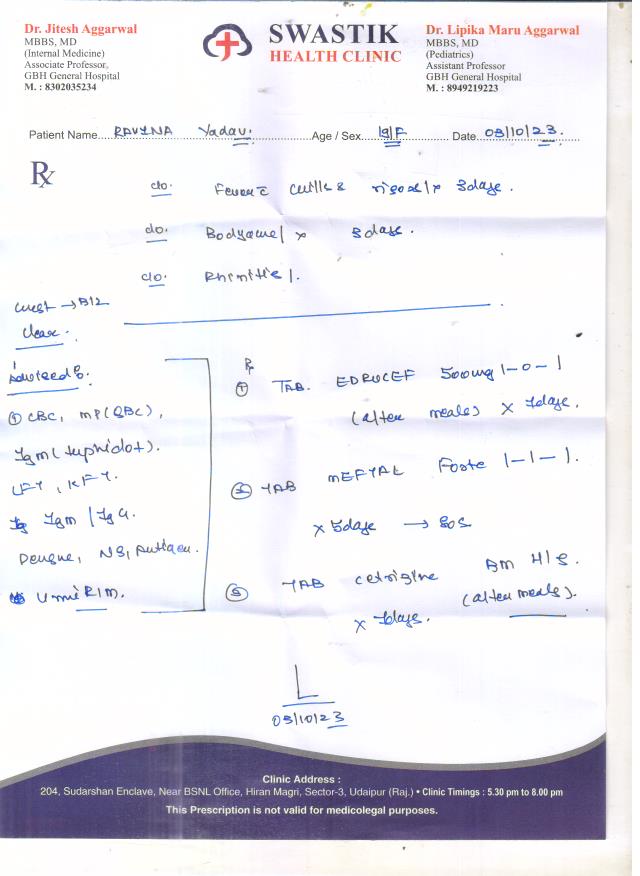 Dr. Jitesh Aggarwal
MBBS, MD
(Internal Medicine)
Associate Professor,
GBH General Hospital
M. : 8302035234
SWASTIK
HEALTH CLINIC
Dr. Lipika Maru Aggarwal
MBBS, MD
(Pediatrics)
Assistant Professor
GBH General Hospital
M. : 8949219223
Patient Name RAVINA Yadav. Age / Sex 19/F Date 03/10/23.
Rx
c/o. Fever c chills & x 3days.
c/o. Bodyache / x 3days.
c/o. Rhinitis /.
Chest → B/L
Clear.
Advised:
① CBC, MP(QBC),
IgM (typhidot).
LFT, KFT.
IgM / IgG.
Dengue, NS1 Antigen.
Urine R/M.
Rx
① TAB. 500mg 1-0-1
(after meals) x 7days.
② TAB MEFTAL Forte 1-1-1.
x 3days → SOS
③ TAB cetrizine H/S.
(after meals).
x 7days.
03/10/23
Clinic Address :
204, Sudarshan Enclave, Near BSNL Office, Hiran Magri, Sector-3, Udaipur (Raj.) • Clinic Timings : 5.30 pm to 8.00 pm
This Prescription is not valid for medicolegal purposes.